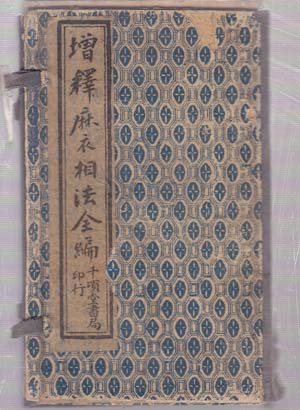 增釋麻衣相法全編
千頃堂書局
印行